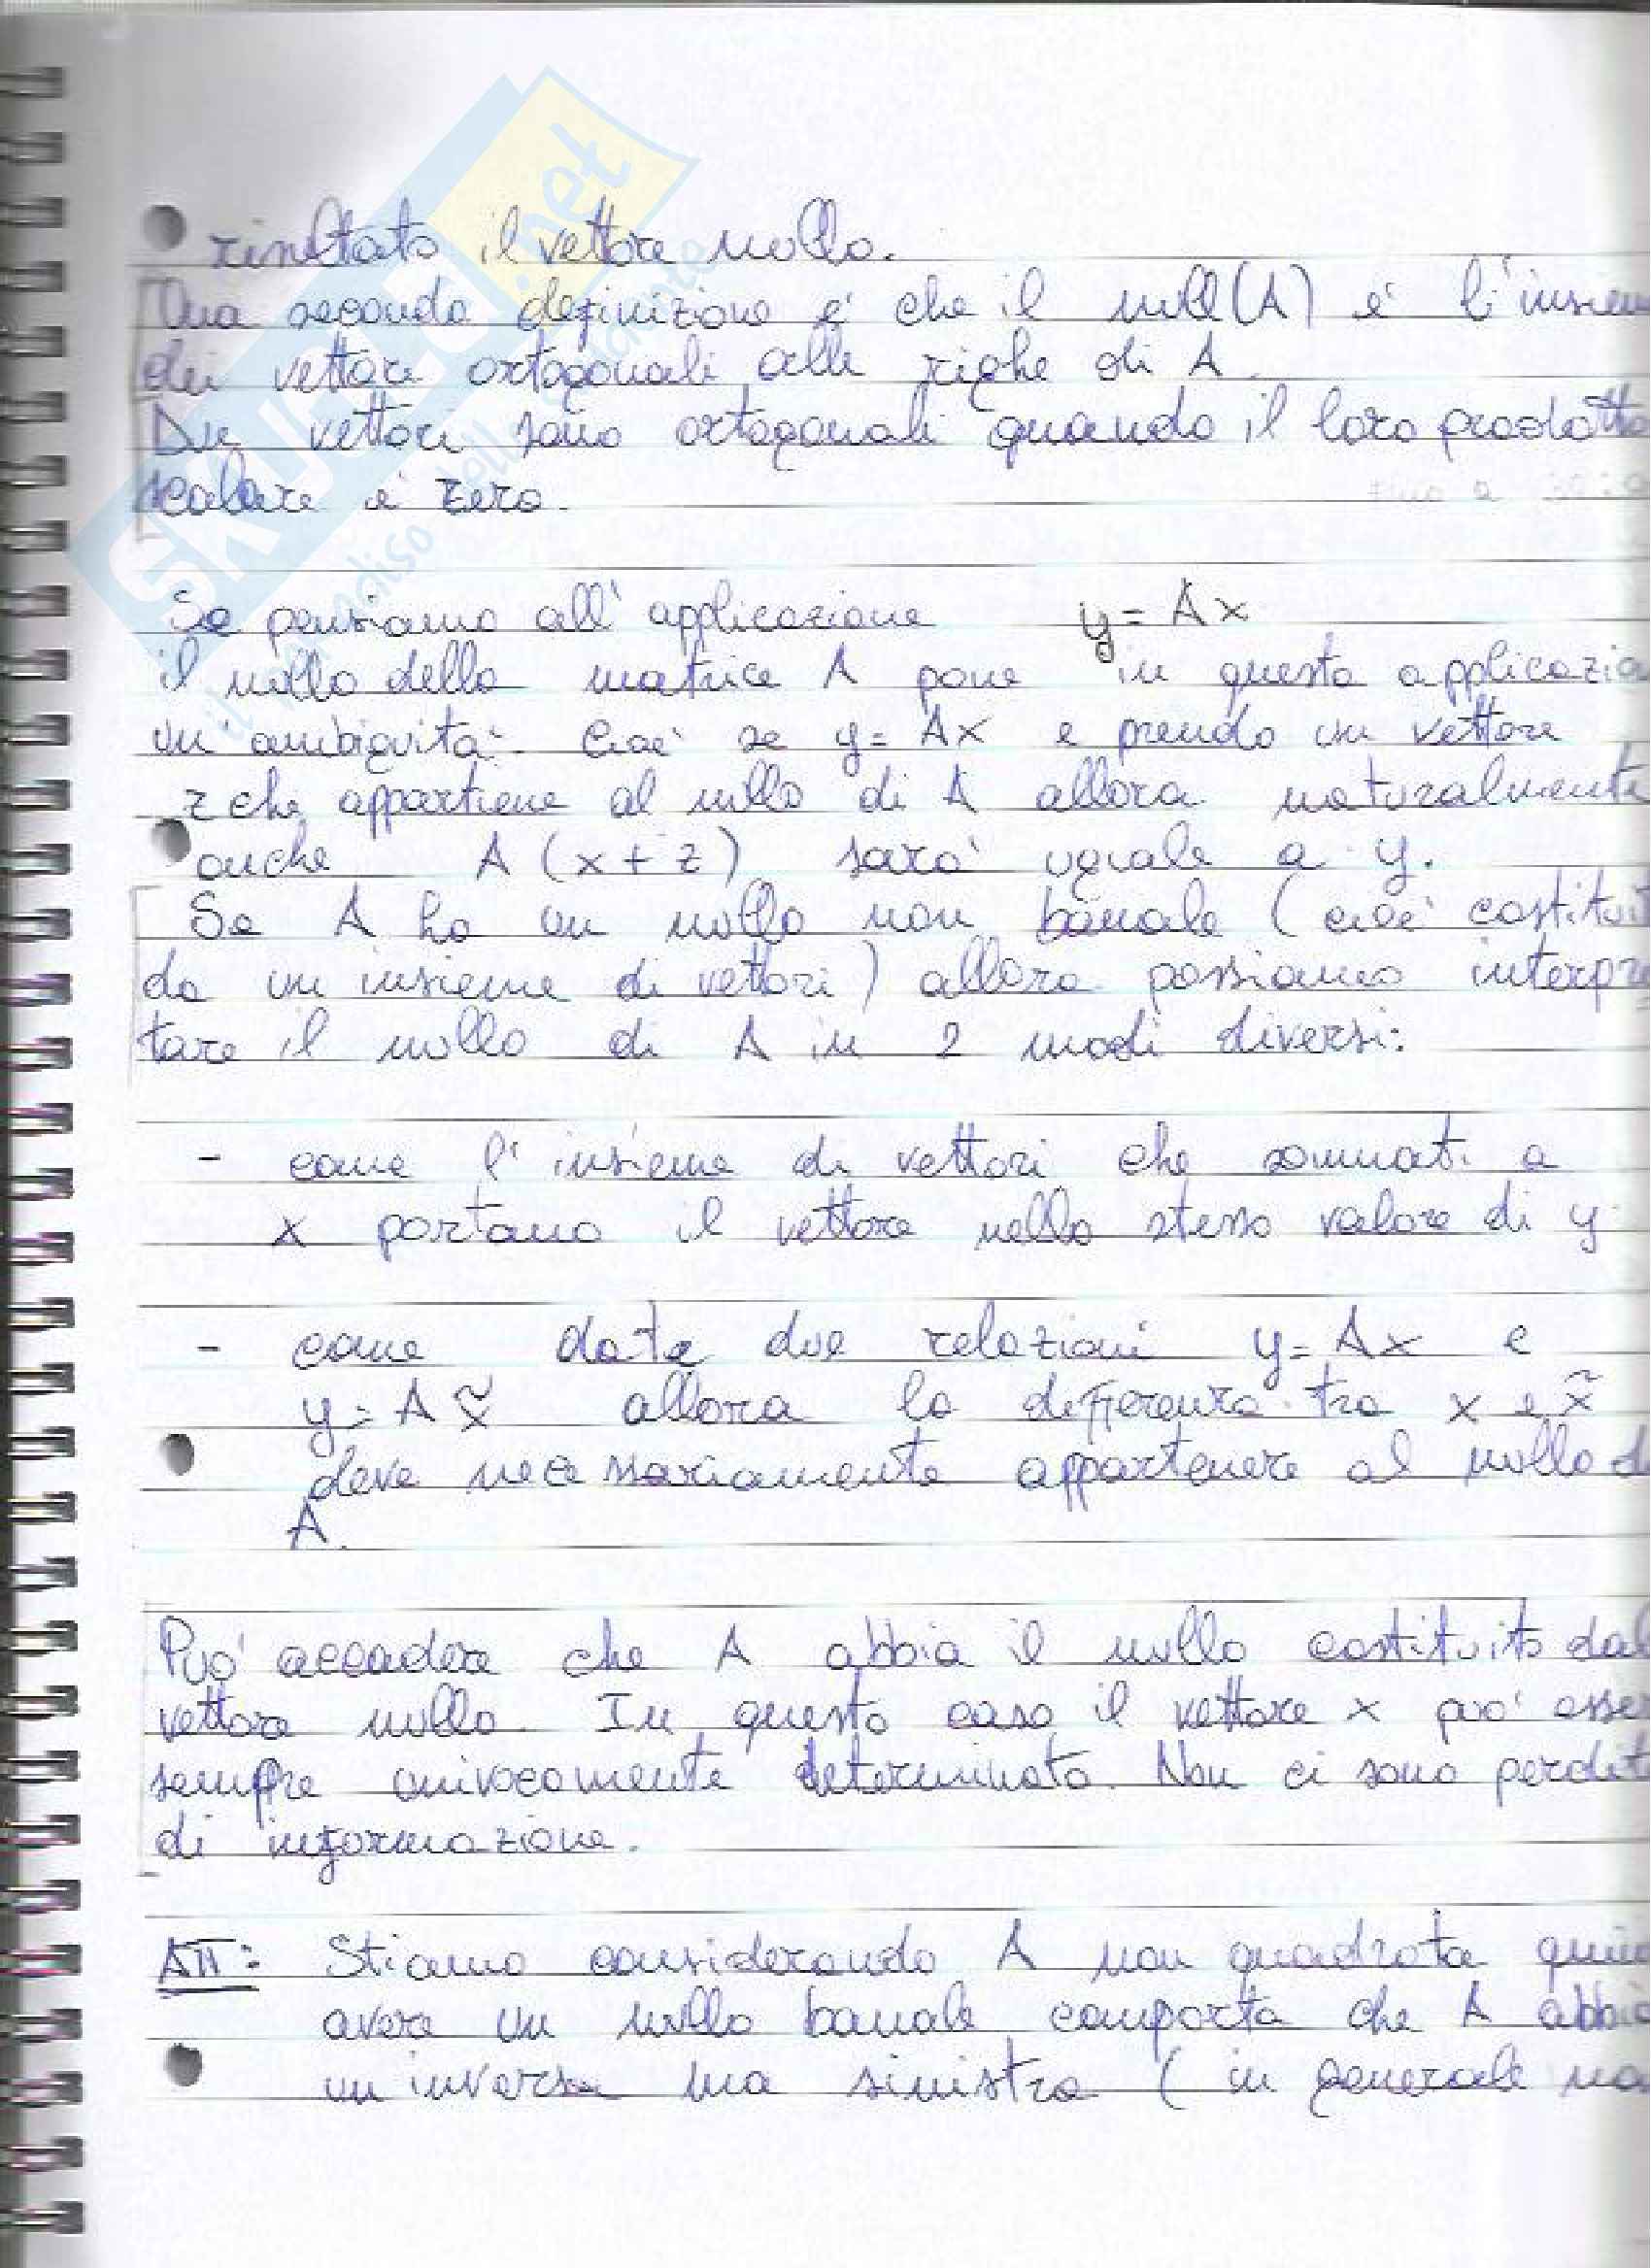 risultato il vettore nullo.
Una seconda definizione è che il null(A) è l'insiem
dei vettori ortogonali alle righe di A.
Due vettori sono ortogonali quando il loro prodotto
scalare è zero.
Se pensiamo all'applicazione y = Ax
il nullo della matrice A pone in questa applicazio
un'ambiguità. Cioè se y = Ax e prendo un vettore
z che appartiene al nullo di A allora naturalmente
anche A (x+z) sarà uguale a y.
Se A ha un nullo non banale (cioè costitui
da un insieme di vettori) allora possiamo interpre
tare il nullo di A in 2 modi diversi:
- come l'insieme di vettori che sommati a
x portano il vettore nello stesso valore di y
- come date due relazioni y = Ax e
y = A x̃ allora la differenza tra x e x̃
deve necessariamente appartenere al nullo di
A.
Può accadere che A abbia il nullo costituito dal
vettore nullo. In questo caso il vettore x può esse
sempre univocamente determinato. Non ci sono perdite
di informazione.
ATT: Stiamo considerando A non quadrata quin
avere un nullo banale comporta che A abbia
un'inversa ma sinistra (in generale no
SKUOLA.net
il paradiso dello studente